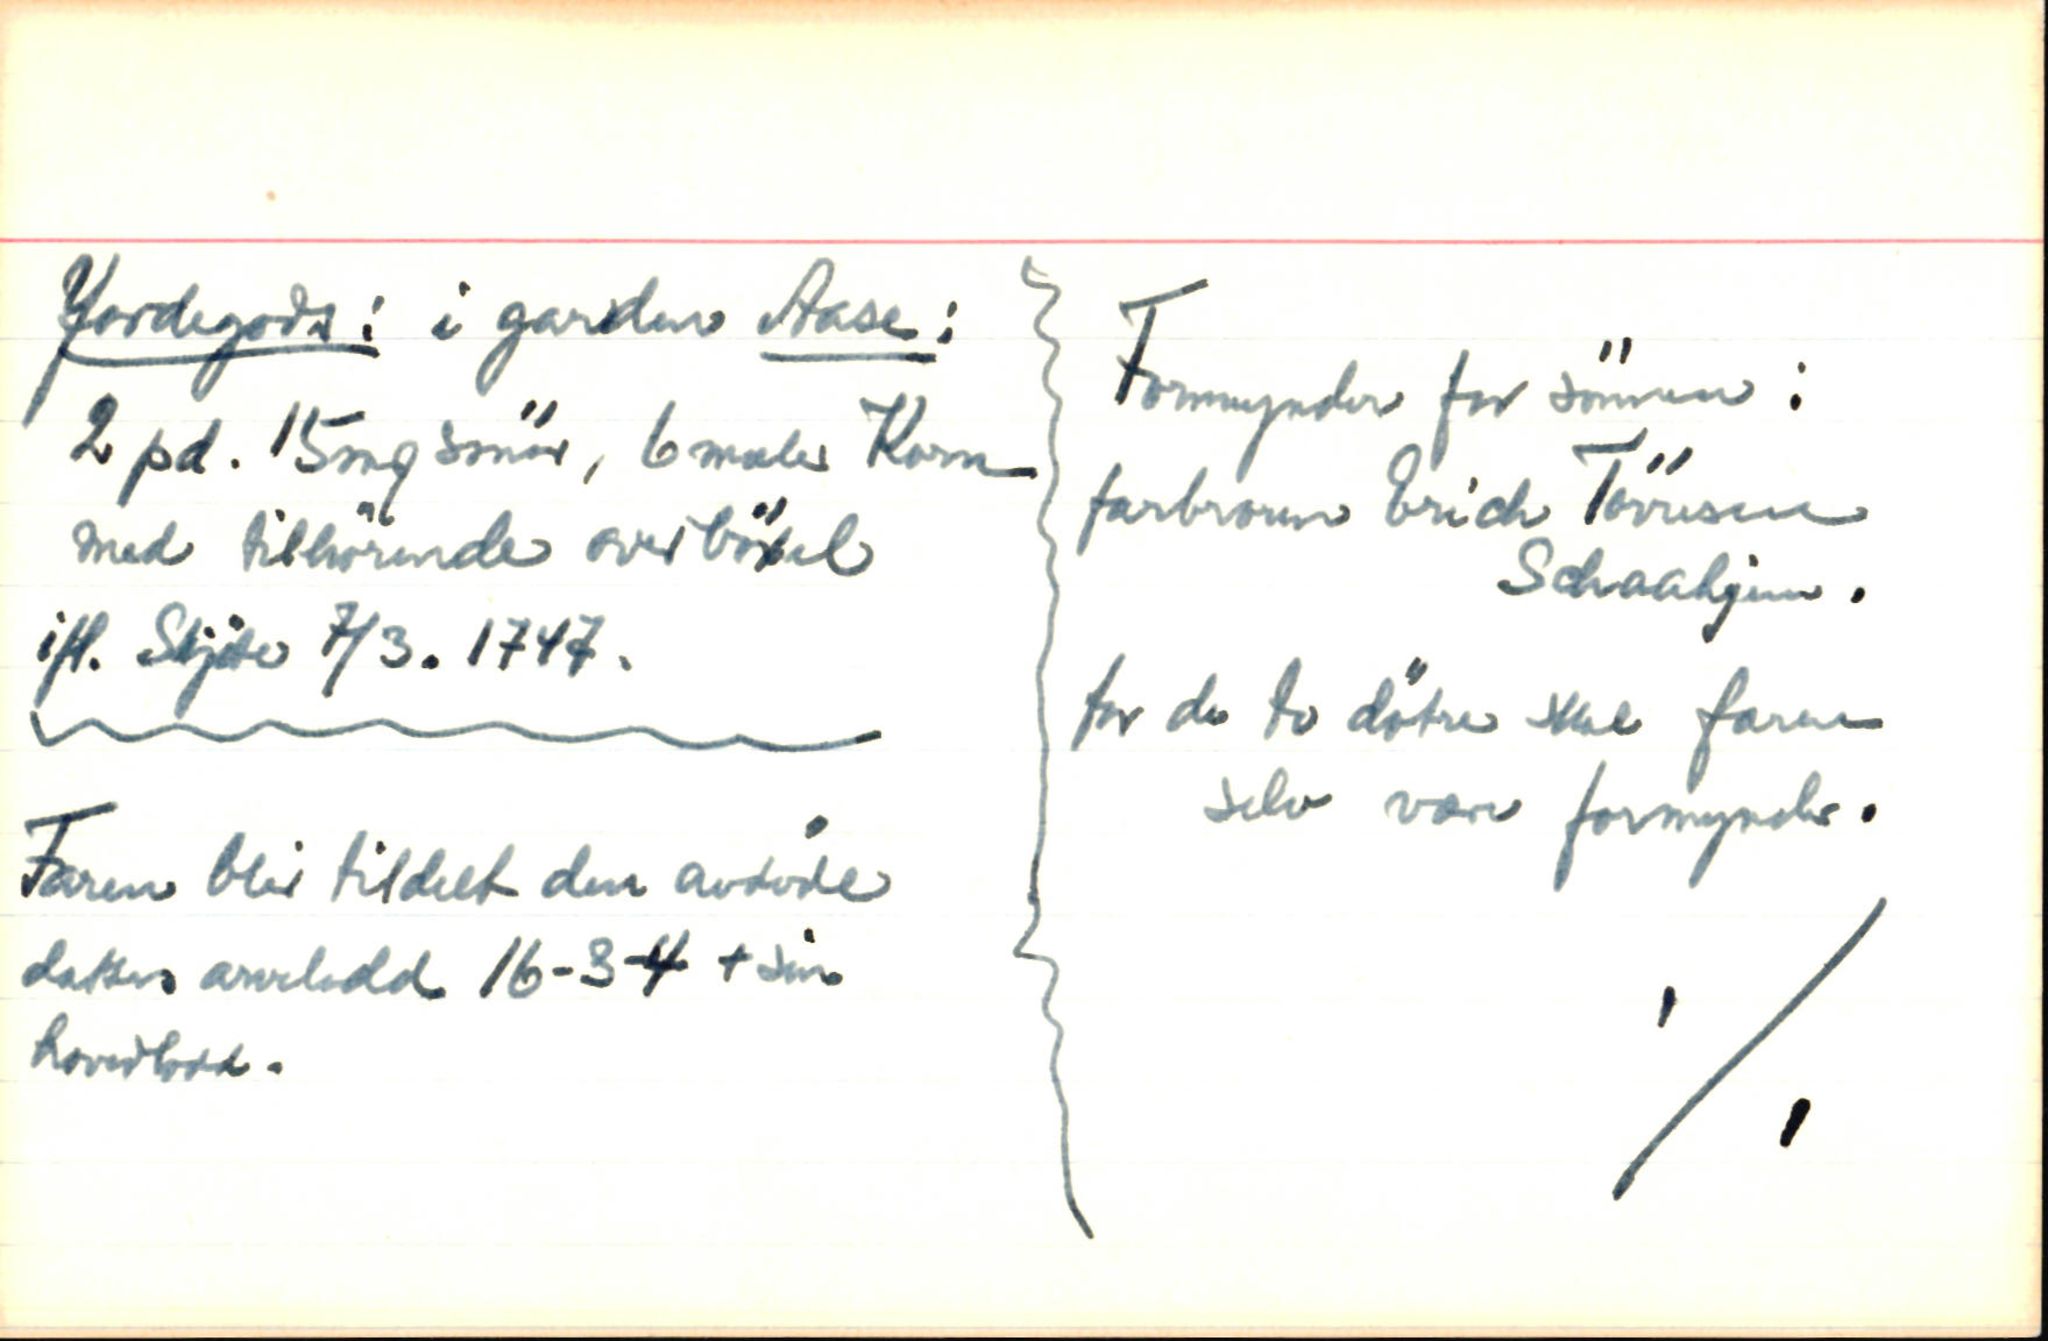 Jordegods: i garden Aase:
2 pd. 15 mg smör, 6 maler Korn
med tilhörende overböxel
ifl. Skjöte 7/3. 1747.
Faren blir tildelt den avdöde
datters arvelodd 16-3-4 + sin
hovedlodd.
Formynder for sönnen:
farbroren Erich Törresen
Schaahjem.
for de to dötre skal faren
selv være formynder.